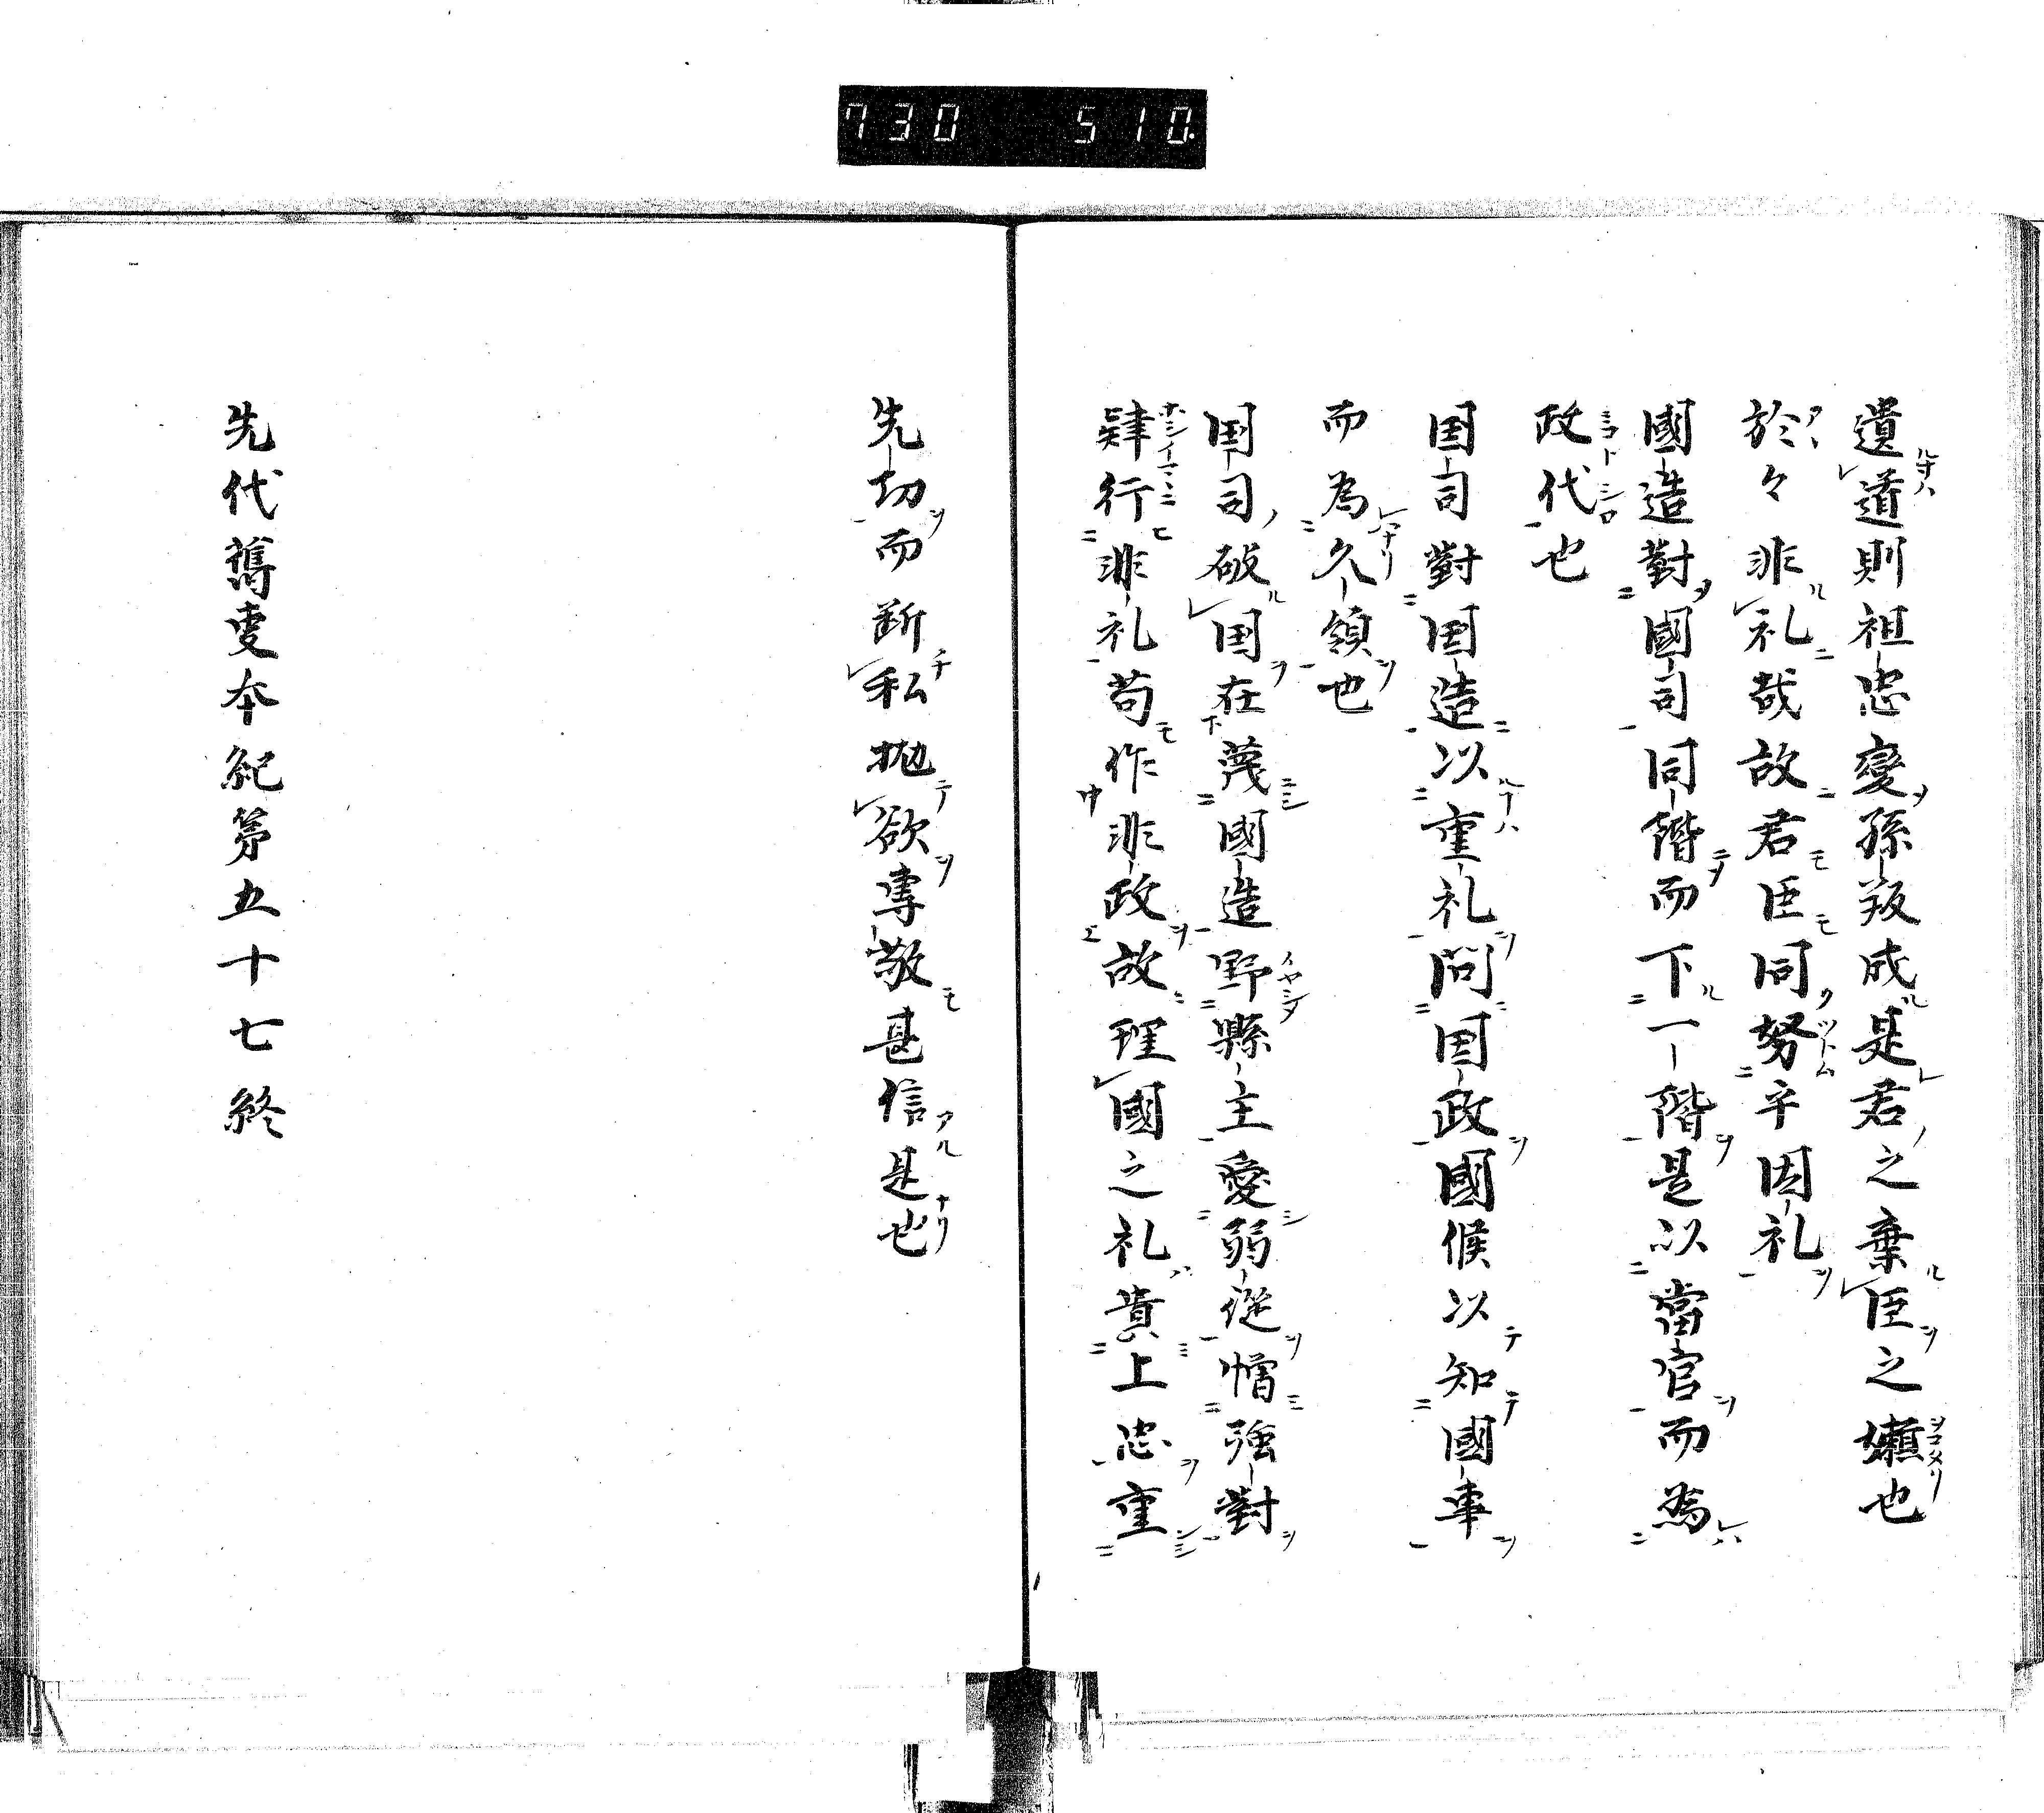 730 510
遺道則祖忠變孫叛成是君之棄臣之嬾也
於々非礼哉故君臣同努卒因礼
國造對國司同階而下一階是以當官而為
政代也
国司對国造以重礼問国政國候以知國事
而為久領也
国司破国在蔑國造野縣主愛弱従憎強對
肆行非礼苟作非政故理國之礼貴上忠重
先功而断私拋欲専敬甚信是也
先代舊事本紀第五十七終